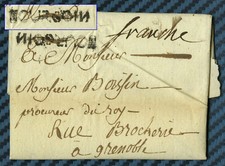 BOURGOIN
franche
A Monsieur
Monsieur Boissin
procureur du roy
Rue Brocherie
a grenoble